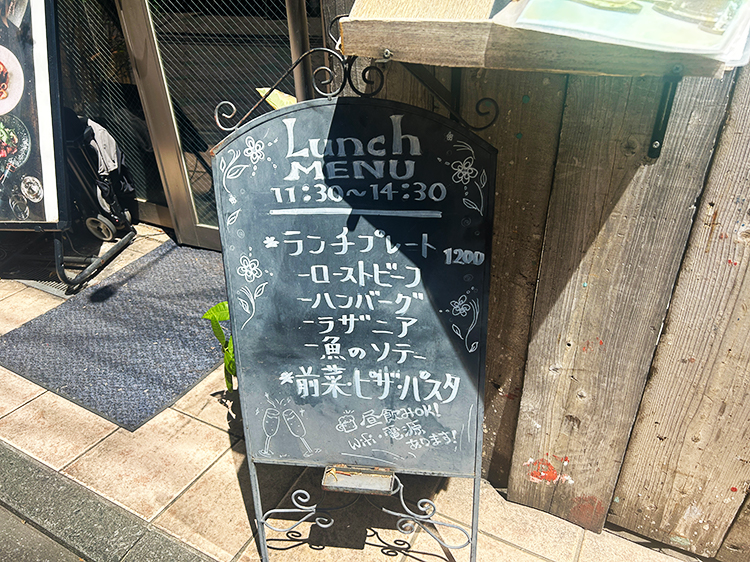 Lunch
MENU
11:30~14:30
*ランチプレート 1200
-ローストビーフ
-ハンバーグ
-ラザニア
-魚のソテー
*前菜・ピザ・パスタ
昼飲みOK!
Wifi・電源
あります!